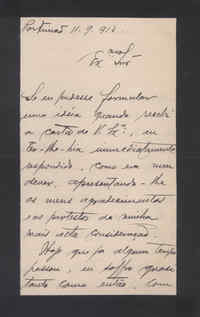 Portimão 11.9.912
Exmo Snr
Se eu pudesse formular
uma ideia quando recebi
a carta de V. Exª., eu
ter-lhe-hia immediatamente
respondido, como era meu
dever, apresentando-lhe
os meus agradecimentos
e os protestos da minha
mais alta consideração.
Hoje que já algum tempo
passou, eu soffro quasi
tanto como então, com